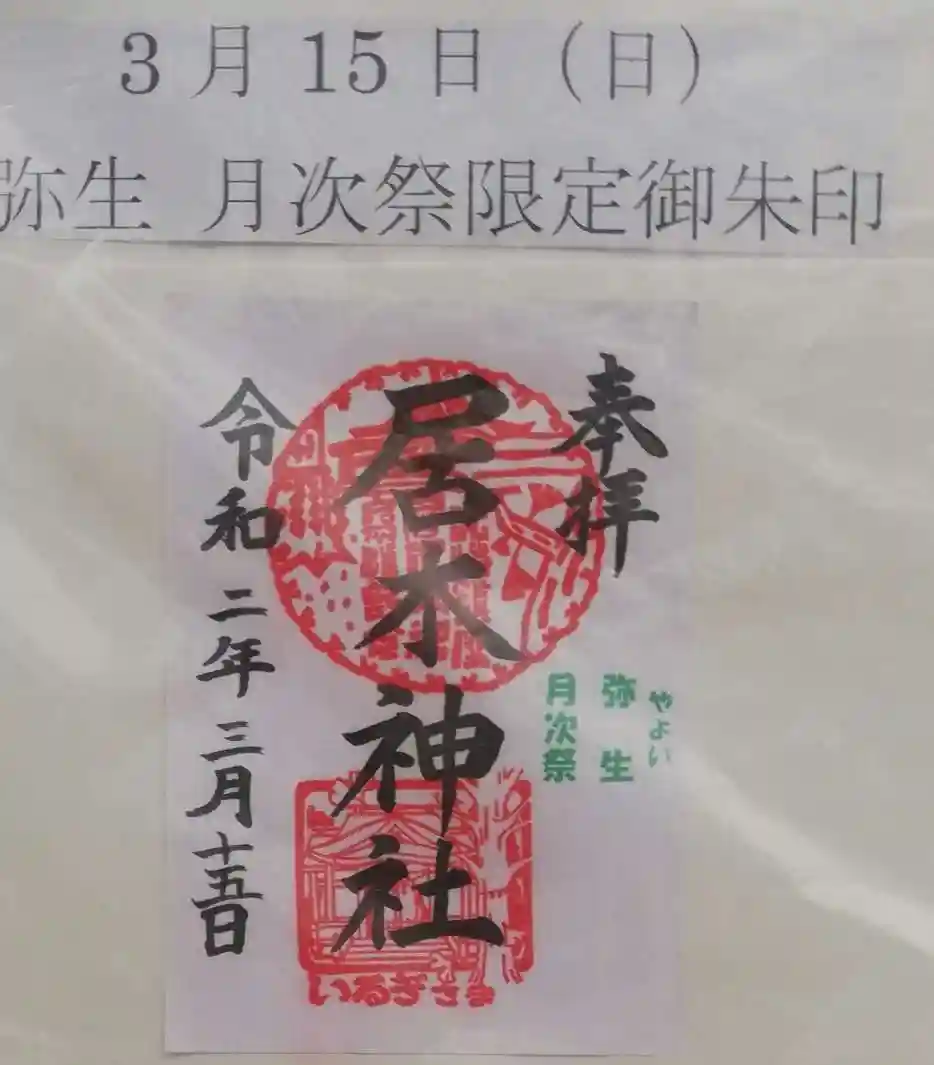 3月15日（日）
弥生 月次祭限定御朱印
奉拝
やよい
弥生
月次祭
居木神社
令和二年三月十五日
いるぎさま